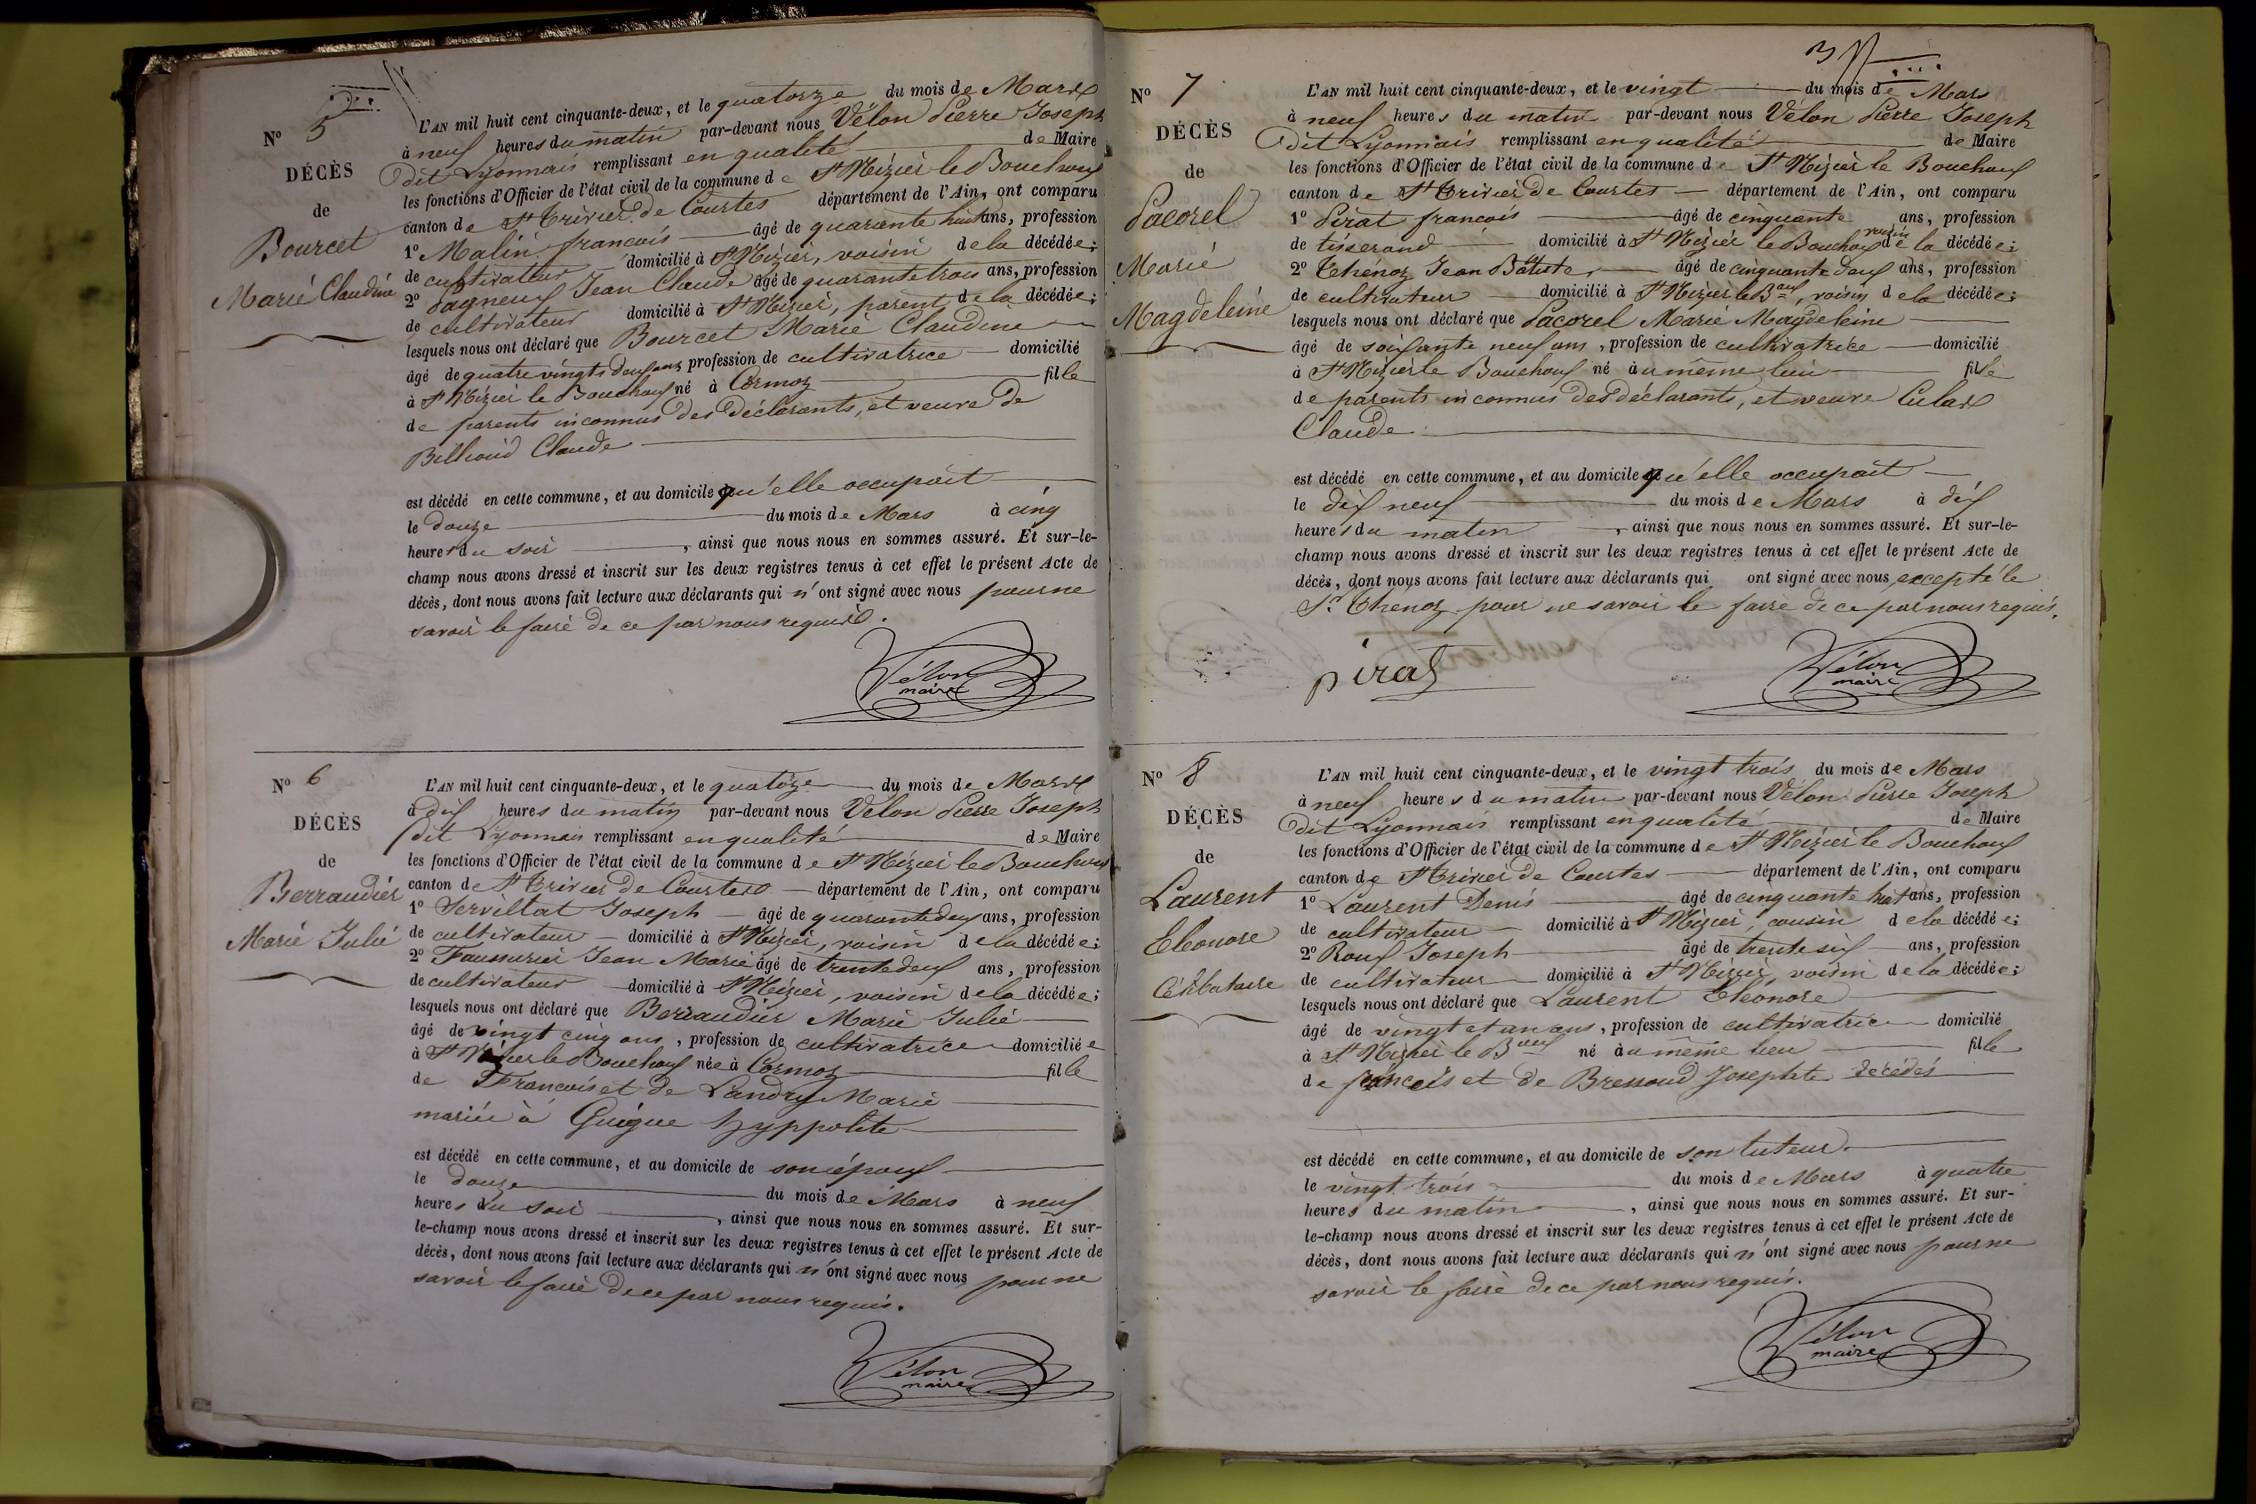 N° 5
DÉCÈS
de
Bourcet
Marie Claudine
L'AN mil huit cent cinquante-deux, et le quatorze du mois de Mars
à neuf heures du matin par-devant nous Vélon Pierre Joseph
dit Lyonnais remplissant en qualité de Maire
les fonctions d'Officier de l'état civil de la commune de St Nizier le Bouchoux
canton de St Trivier de Courtes département de l'Ain, ont comparu
1° Malin françois âgé de quarante huit ans, profession
de cultivateur domicilié à St Nizier, voisin de la décédée;
2° Pagneux Jean Claude âgé de quarante trois ans, profession
de cultivateur domicilié à St Nizier, parent de la décédée;
lesquels nous ont déclaré que Bourcet Marie Claudine
âgé de quatre vingts deux ans profession de cultivatrice domicilié
à St Nizier le Bouchoux né à Cormoz fille
de parents inconnus des déclarants, et veuve de
Billioud Claude
est décédé en cette commune, et au domicile qu'elle occupait
le douze du mois de Mars à cinq
heures du soir, ainsi que nous nous en sommes assuré. Et sur-le-
champ nous avons dressé et inscrit sur les deux registres tenus à cet effet le présent Acte de
décès, dont nous avons fait lecture aux déclarants qui n'ont signé avec nous pour ne
savoir le faire de ce par nous requis.
Vélon
maire
N° 6
DÉCÈS
de
Berraudier
Marie Julie
L'AN mil huit cent cinquante-deux, et le quatorze du mois de Mars
à dix heures du matin par-devant nous Vélon Pierre Joseph
dit Lyonnais remplissant en qualité de Maire
les fonctions d'Officier de l'état civil de la commune de St Nizier le Bouchoux
canton de St Trivier de Courtes département de l'Ain, ont comparu
1° Servillat Joseph âgé de quarante deux ans, profession
de cultivateur domicilié à St Nizier, voisin de la décédée;
2° Faussurier Jean Marie âgé de trente deux ans, profession
de cultivateur domicilié à St Nizier, voisin de la décédée;
lesquels nous ont déclaré que Berraudier Marie Julie
âgé de vingt cinq ans, profession de cultivatrice domiciliée
à St Nizier le Bouchoux née à Cormoz fille
de François et de Landry Marie
mariée à Guigue hyppolite
est décédé en cette commune, et au domicile de son époux
le douze du mois de Mars à neuf
heures du soir, ainsi que nous nous en sommes assuré. Et sur-
le-champ nous avons dressé et inscrit sur les deux registres tenus à cet effet le présent Acte de
décès, dont nous avons fait lecture aux déclarants qui n'ont signé avec nous pour ne
savoir le faire de ce par nous requis.
Vélon
maire
3
N° 7
DÉCÈS
de
Pacorel
Marie
Magdeleine
L'AN mil huit cent cinquante-deux, et le vingt du mois de Mars
à neuf heures du matin par-devant nous Vélon Pierre Joseph
dit Lyonnais remplissant en qualité de Maire
les fonctions d'Officier de l'état civil de la commune de St Nizier le Bouchoux
canton de St Trivier de Courtes département de l'Ain, ont comparu
1° Pirat françois âgé de cinquante ans, profession
de tisserand domicilié à St Nizier le Bouchoux voisin de la décédée;
2° Thénoz Jean Bàtiste, âgé de cinquante deux ans, profession
de cultivateur domicilié à St Nizier le Boux, voisin de la décédée;
lesquels nous ont déclaré que Pacorel Marie Magdeleine
âgé de soixante neuf ans, profession de cultivatrice domicilié
à St Nizier le Bouchoux né au même lieu fille
de parents inconnus des déclarants, et veuve Culas
Claude
est décédé en cette commune, et au domicile qu'elle occupait
le dix neuf du mois de Mars à dix
heures du matin, ainsi que nous nous en sommes assuré. Et sur-le-
champ nous avons dressé et inscrit sur les deux registres tenus à cet effet le présent Acte de
décès, dont nous avons fait lecture aux déclarants qui ont signé avec nous excepté le
Sr Thenoz pour ne savoir le faire de ce par nous requis.
pirat
Vélon
maire
N° 8
DÉCÈS
de
Laurent
Eleonore
Célibataire
L'AN mil huit cent cinquante-deux, et le vingt trois du mois de Mars
à neuf heures du matin par-devant nous Vélon Pierre Joseph
dit Lyonnais remplissant en qualité de Maire
les fonctions d'Officier de l'état civil de la commune de St Nizier le Bouchoux
canton de St Trivier de Courtes département de l'Ain, ont comparu
1° Laurent Denis âgé de cinquante huit ans, profession
de cultivateur domicilié à St Nizier, cousin de la décédée;
2° Roux Joseph âgé de trente six ans, profession
de cultivateur domicilié à St Nizier, voisin de la décédée;
lesquels nous ont déclaré que Laurent Eléonore
âgé de vingt et un ans, profession de cultivatrice domicilié
à St Nizier le Boux né au même lieu fille
de françois et de Bressoud Josephte décédés
est décédé en cette commune, et au domicile de son tuteur
le vingt trois du mois de Mars à quatre
heures du matin, ainsi que nous nous en sommes assuré. Et sur-
le-champ nous avons dressé et inscrit sur les deux registres tenus à cet effet le présent Acte de
décès, dont nous avons fait lecture aux déclarants qui n'ont signé avec nous pour ne
savoir le faire de ce par nous requis.
Vélon
maire